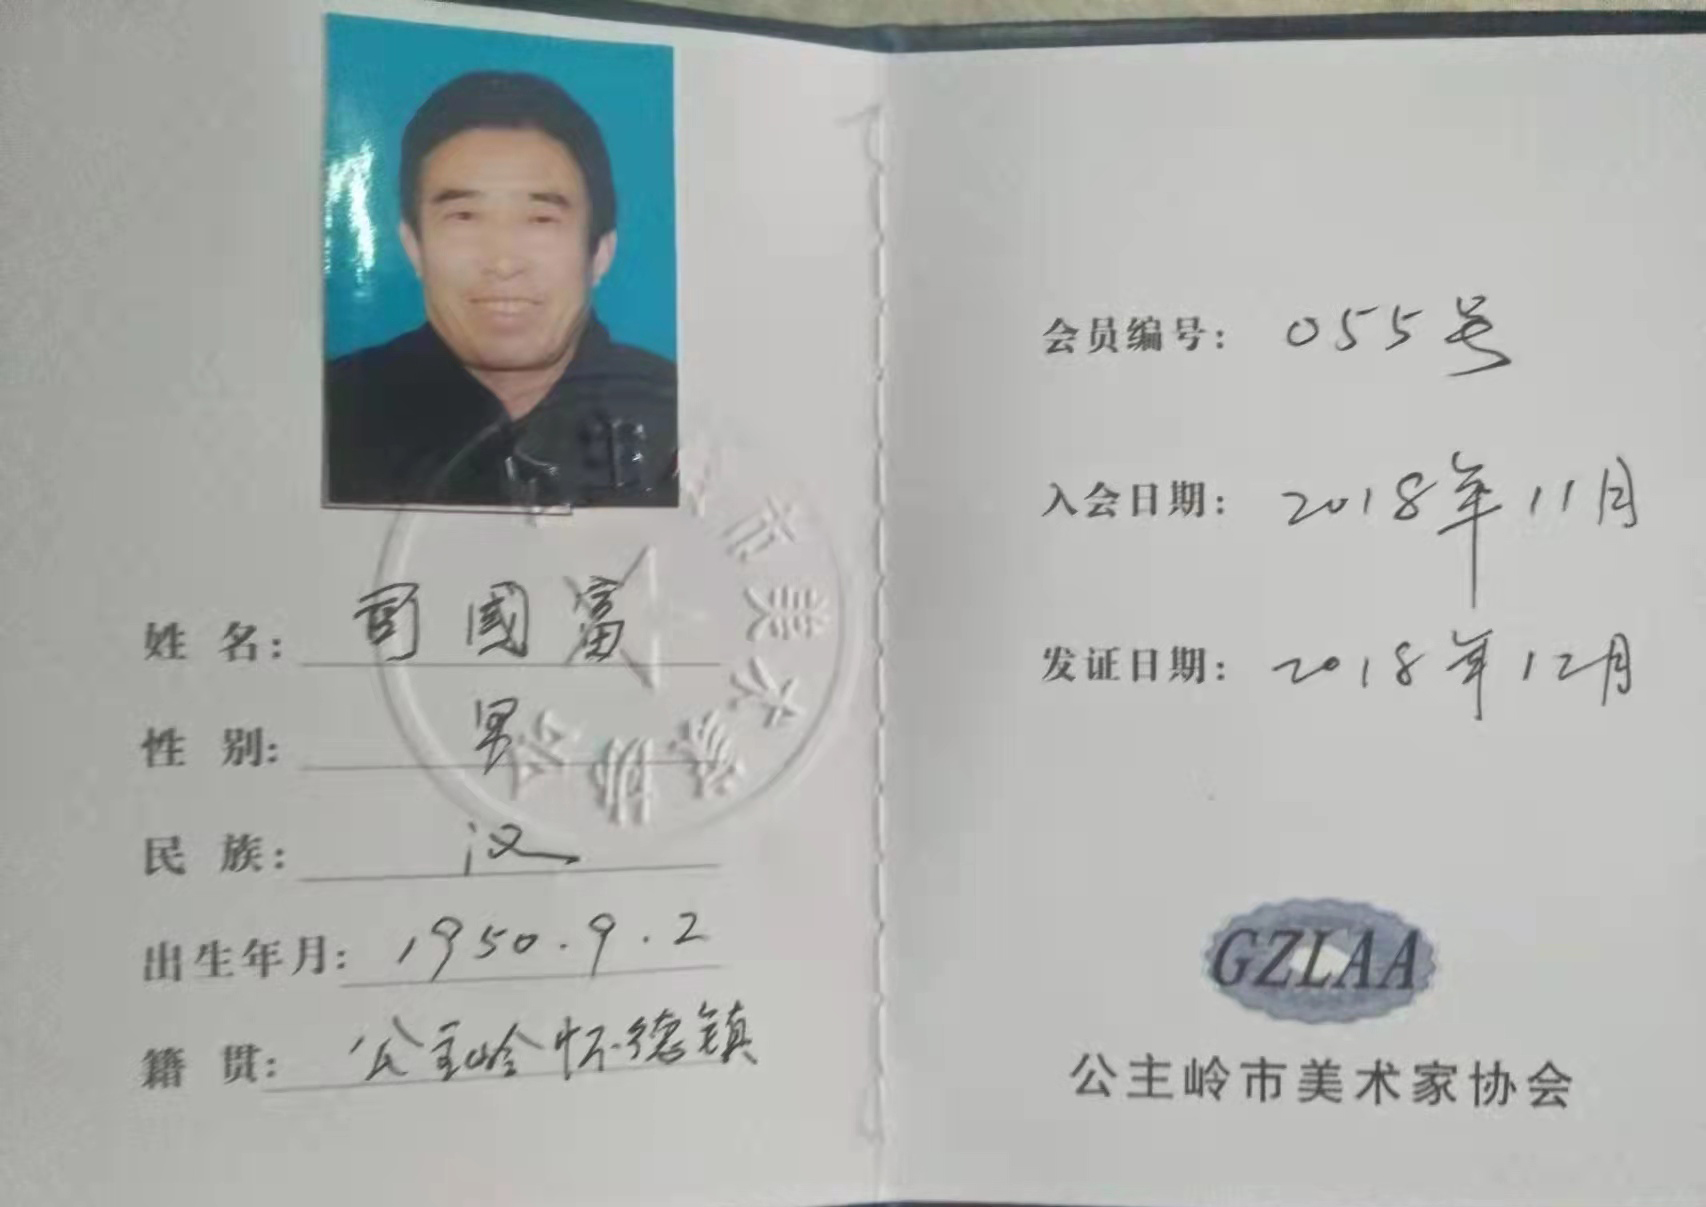 姓 名: 司國富
性 别: 男
民 族: 汉
出生年月: 1950.9.2
籍 贯: 公主岭怀德镇
市美术家协会
会员编号: 055号
入会日期: 2018年11月
发证日期: 2018年12月
GZLAA
公主岭市美术家协会